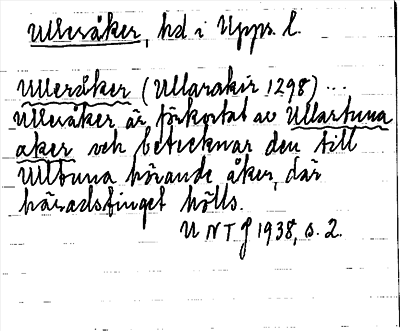 Ulleråker, hd i Upps. l.
Ulleråker (Ullarakir 1298) ...
Ulleråker är förkortat av Ullartuna
aker och betecknar den till
Ulltuna hörande åker, där
häradstinget hölls.
UNTf 1938, s. 2.